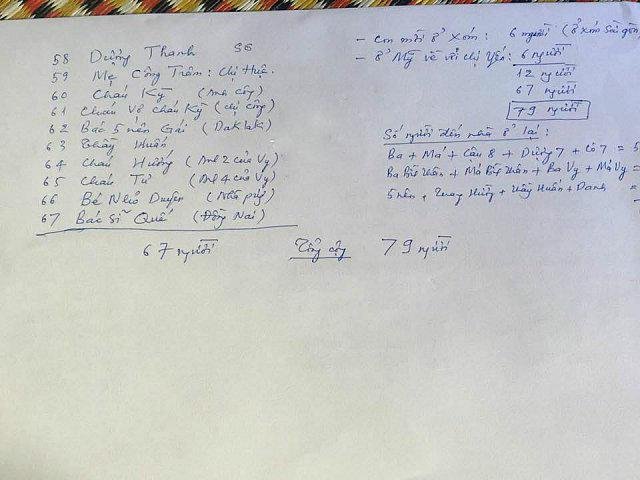 58 Dượng Thanh SG
59 Mẹ Công Trâm: Chị Huệ.
60 Cháu Kỳ (Anh Công)
61 Cháu Vợ cháu Kỳ (chị Công)
62 Bác 5 nên Gái (DakLak)
63 Thầy Huấn
64 Cháu Hương (Anh 2 của Vy)
65 Cháu Tư (Anh 4 của Vy)
66 Bé Nhỏ Duyên (Nhà phụ)
67 Bác Sĩ Quế (Đồng Nai)
67 người Tổng cộng 79 người
- Con mời ở Xóm: 6 người (ở xóm Sài gòn
- ở Mỹ về với chị Yến: 6 người
12 người
67 người
79 người
Số người đến nhà ở lại:
Ba + Má + Cậu 8 + Dượng 7 + Cô 7 = 5
Ba Thân + Má Thân + Ba Vy + Má Vy =
5 nên + Hùng + Thầy Huấn + Danh =